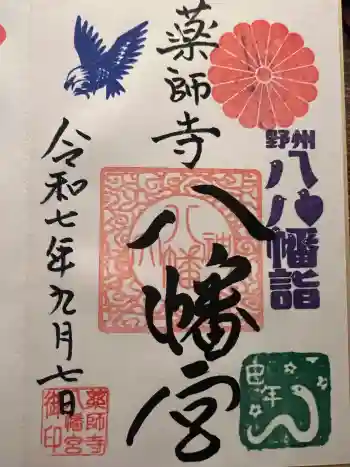 野州
八八幡詣
薬師寺
八幡宮
令和七年九月七日
薬師寺
八幡宮
御印
巳年